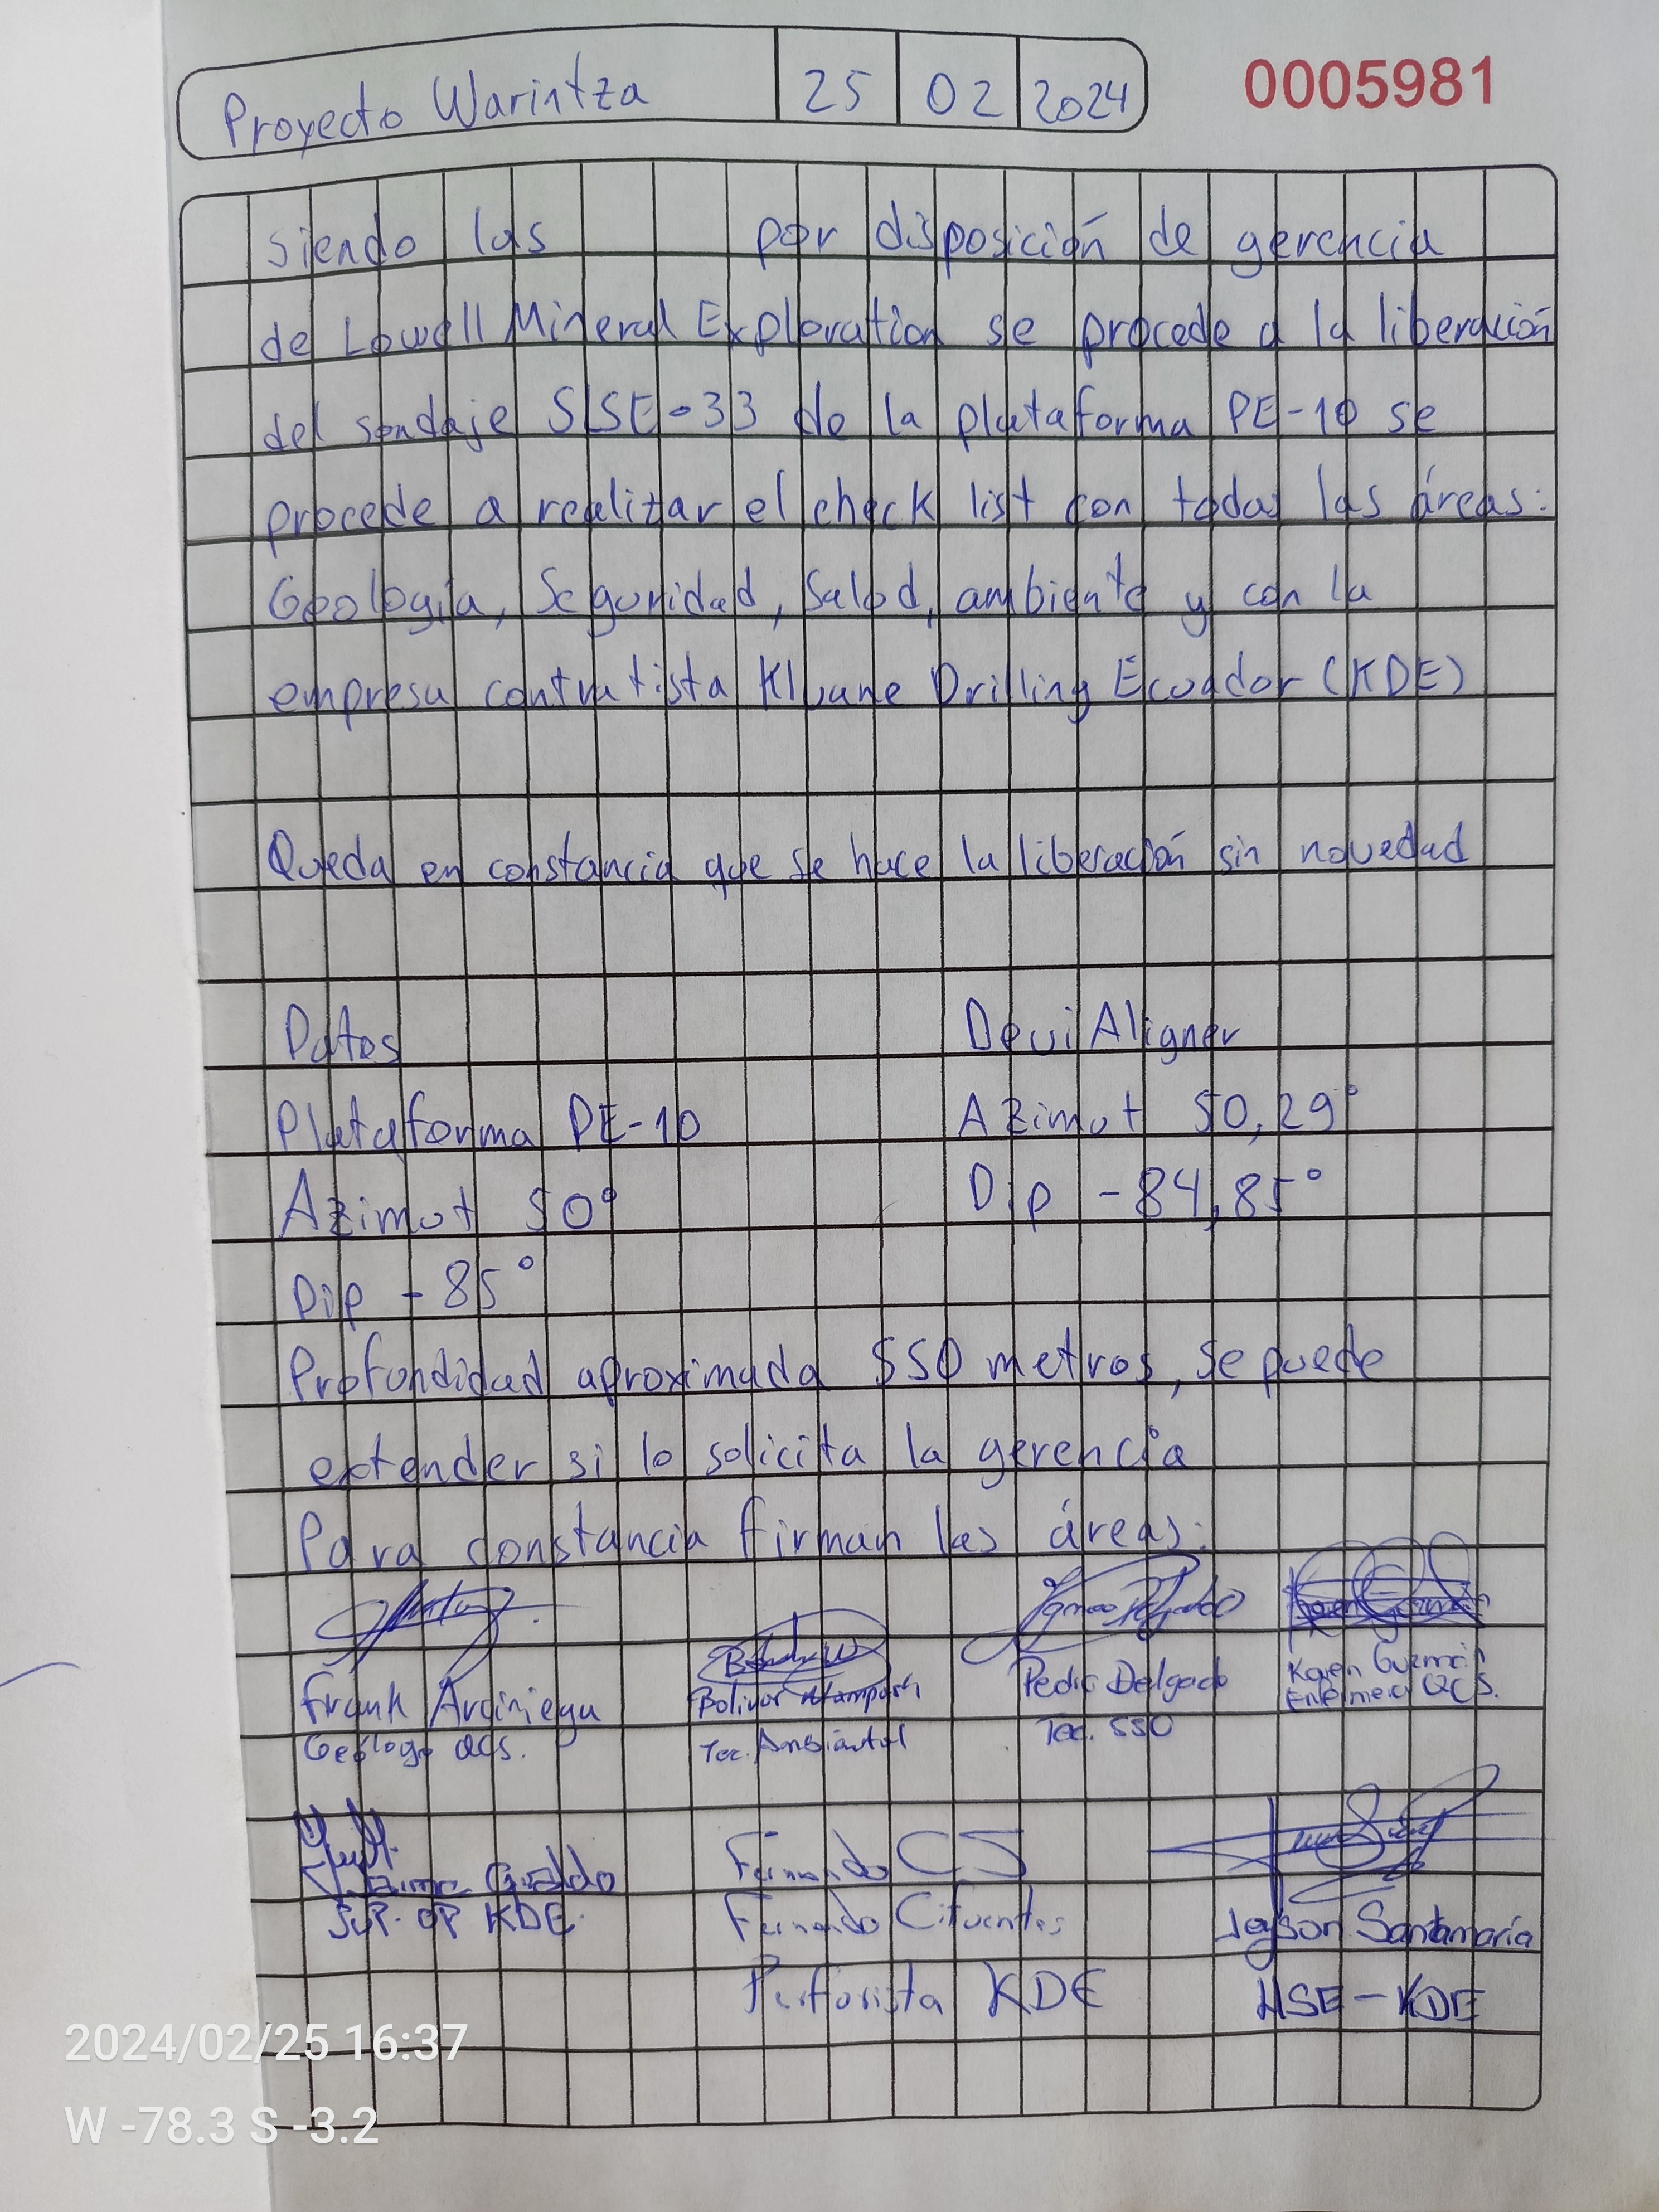 Proyecto Warintza 25 02 2024 0005981
siendo las por disposición de gerencia
de Lowell Mineral Exploration se procede a la liberación
del sondaje SLSE-33 de la plataforma PE-10 se
procede a realizar el check list con todas las áreas:
Geología, Seguridad, Salud, ambiente y con la
empresa contratista Kluane Drilling Ecuador (KDE)
Queda en constancia que se hace la liberación sin novedad
Datos DeviAligner
Plataforma PE-10 Azimut 50,29°
Azimut 50° Dip -84,85°
Dip -85°
Profundidad aproximada 550 metros, se puede
extender si lo solicita la gerencia
Para constancia firman las áreas:
Frank Arciniega Bolivar Pedro Delgado Karen Guzmán
Geólogo QCS. Tec. Ambiental Tec. SSO Enfermera QCS.
Jaime Giraldo Fernando CS
Sup. OP KDE Fernando Cifuentes Jeyson Santamaría
Perforista KDE HSE-KDE
2024/02/25 16:37
W -78.3 S -3.2